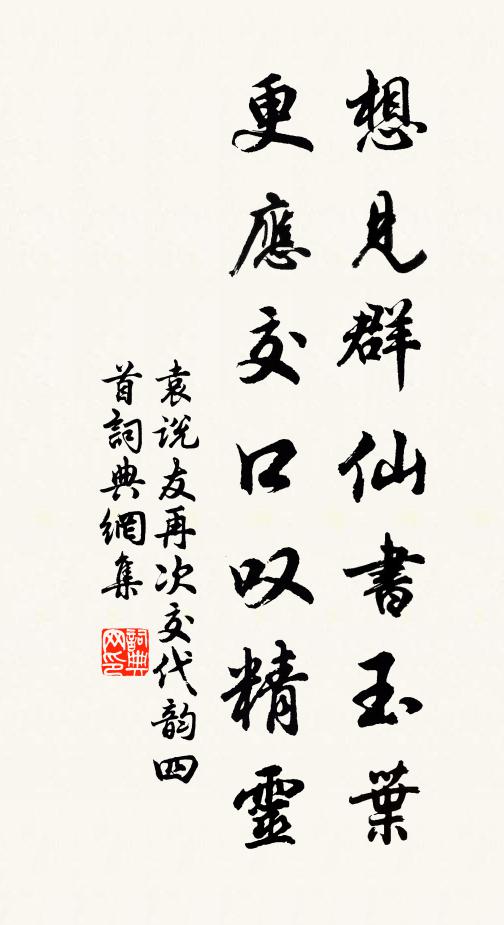 想見群仙書玉葉
更應交口叹精靈
袁说友再次交代韵四
首詞典網集
詞典网印